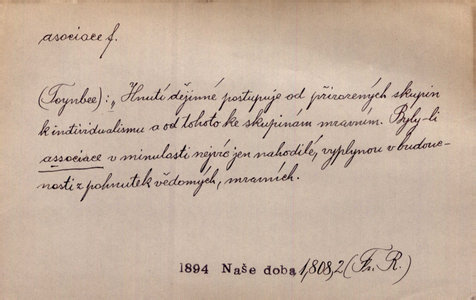 asociace f.
(Toynbee): „Hnutí dějinné postupuje od přirozených skupin
k individualismu a od tohoto ke skupinám mravním. Byly-li
associace v minulosti nejvíc jen nahodilé, vyplynou v budouc-
nosti z pohnutek vědomých, mravních.
1894 Naše doba 1,808,2 (Fr. R.)